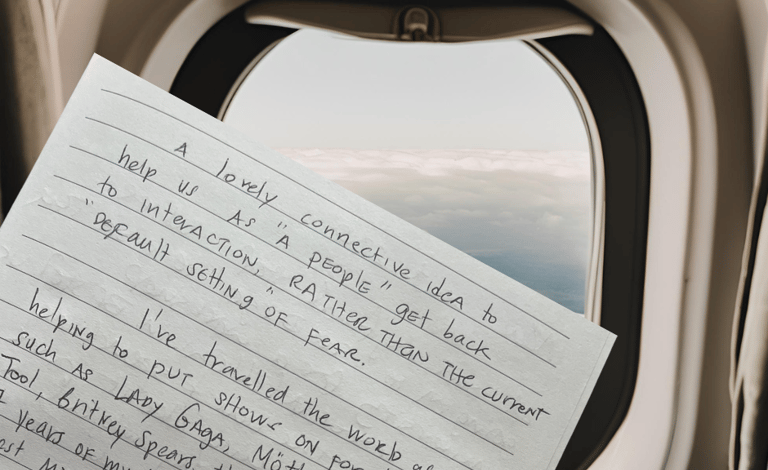 A lovely connective ideA to
help us AS "A people" get back
to interACTION, RATHER THAN THE current
"Default setting" OF FeAR.
I've travelled the world
helping to put shows on for
such as LADY GAGA,
Tool, Britney Spears,
years of my